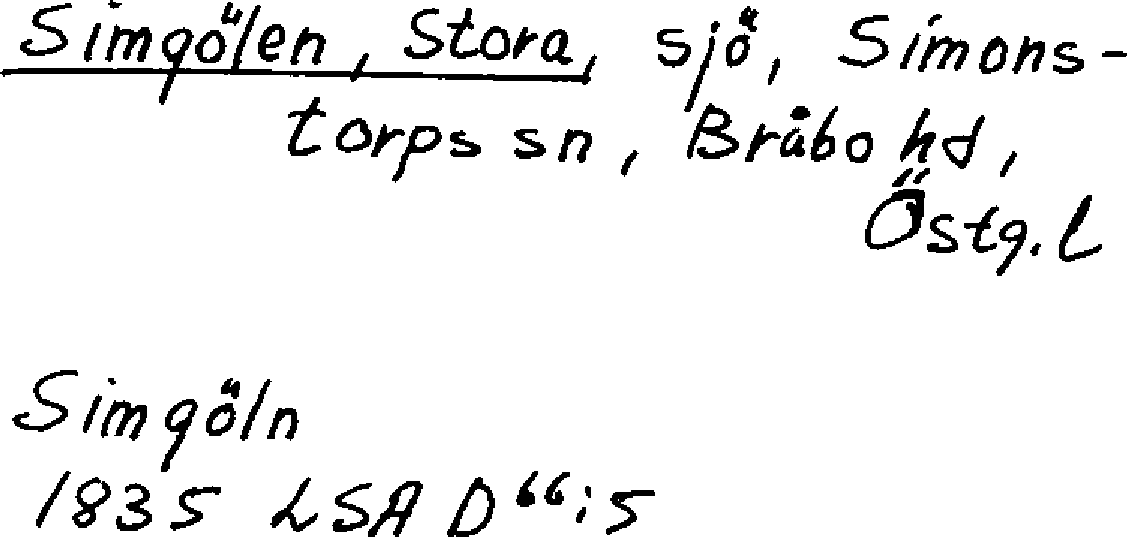 Simgölen, Stora, sjö, Simons-
torps sn, Bråbo hd,
Östg. l
Simgöln
1835 LSA D66:5